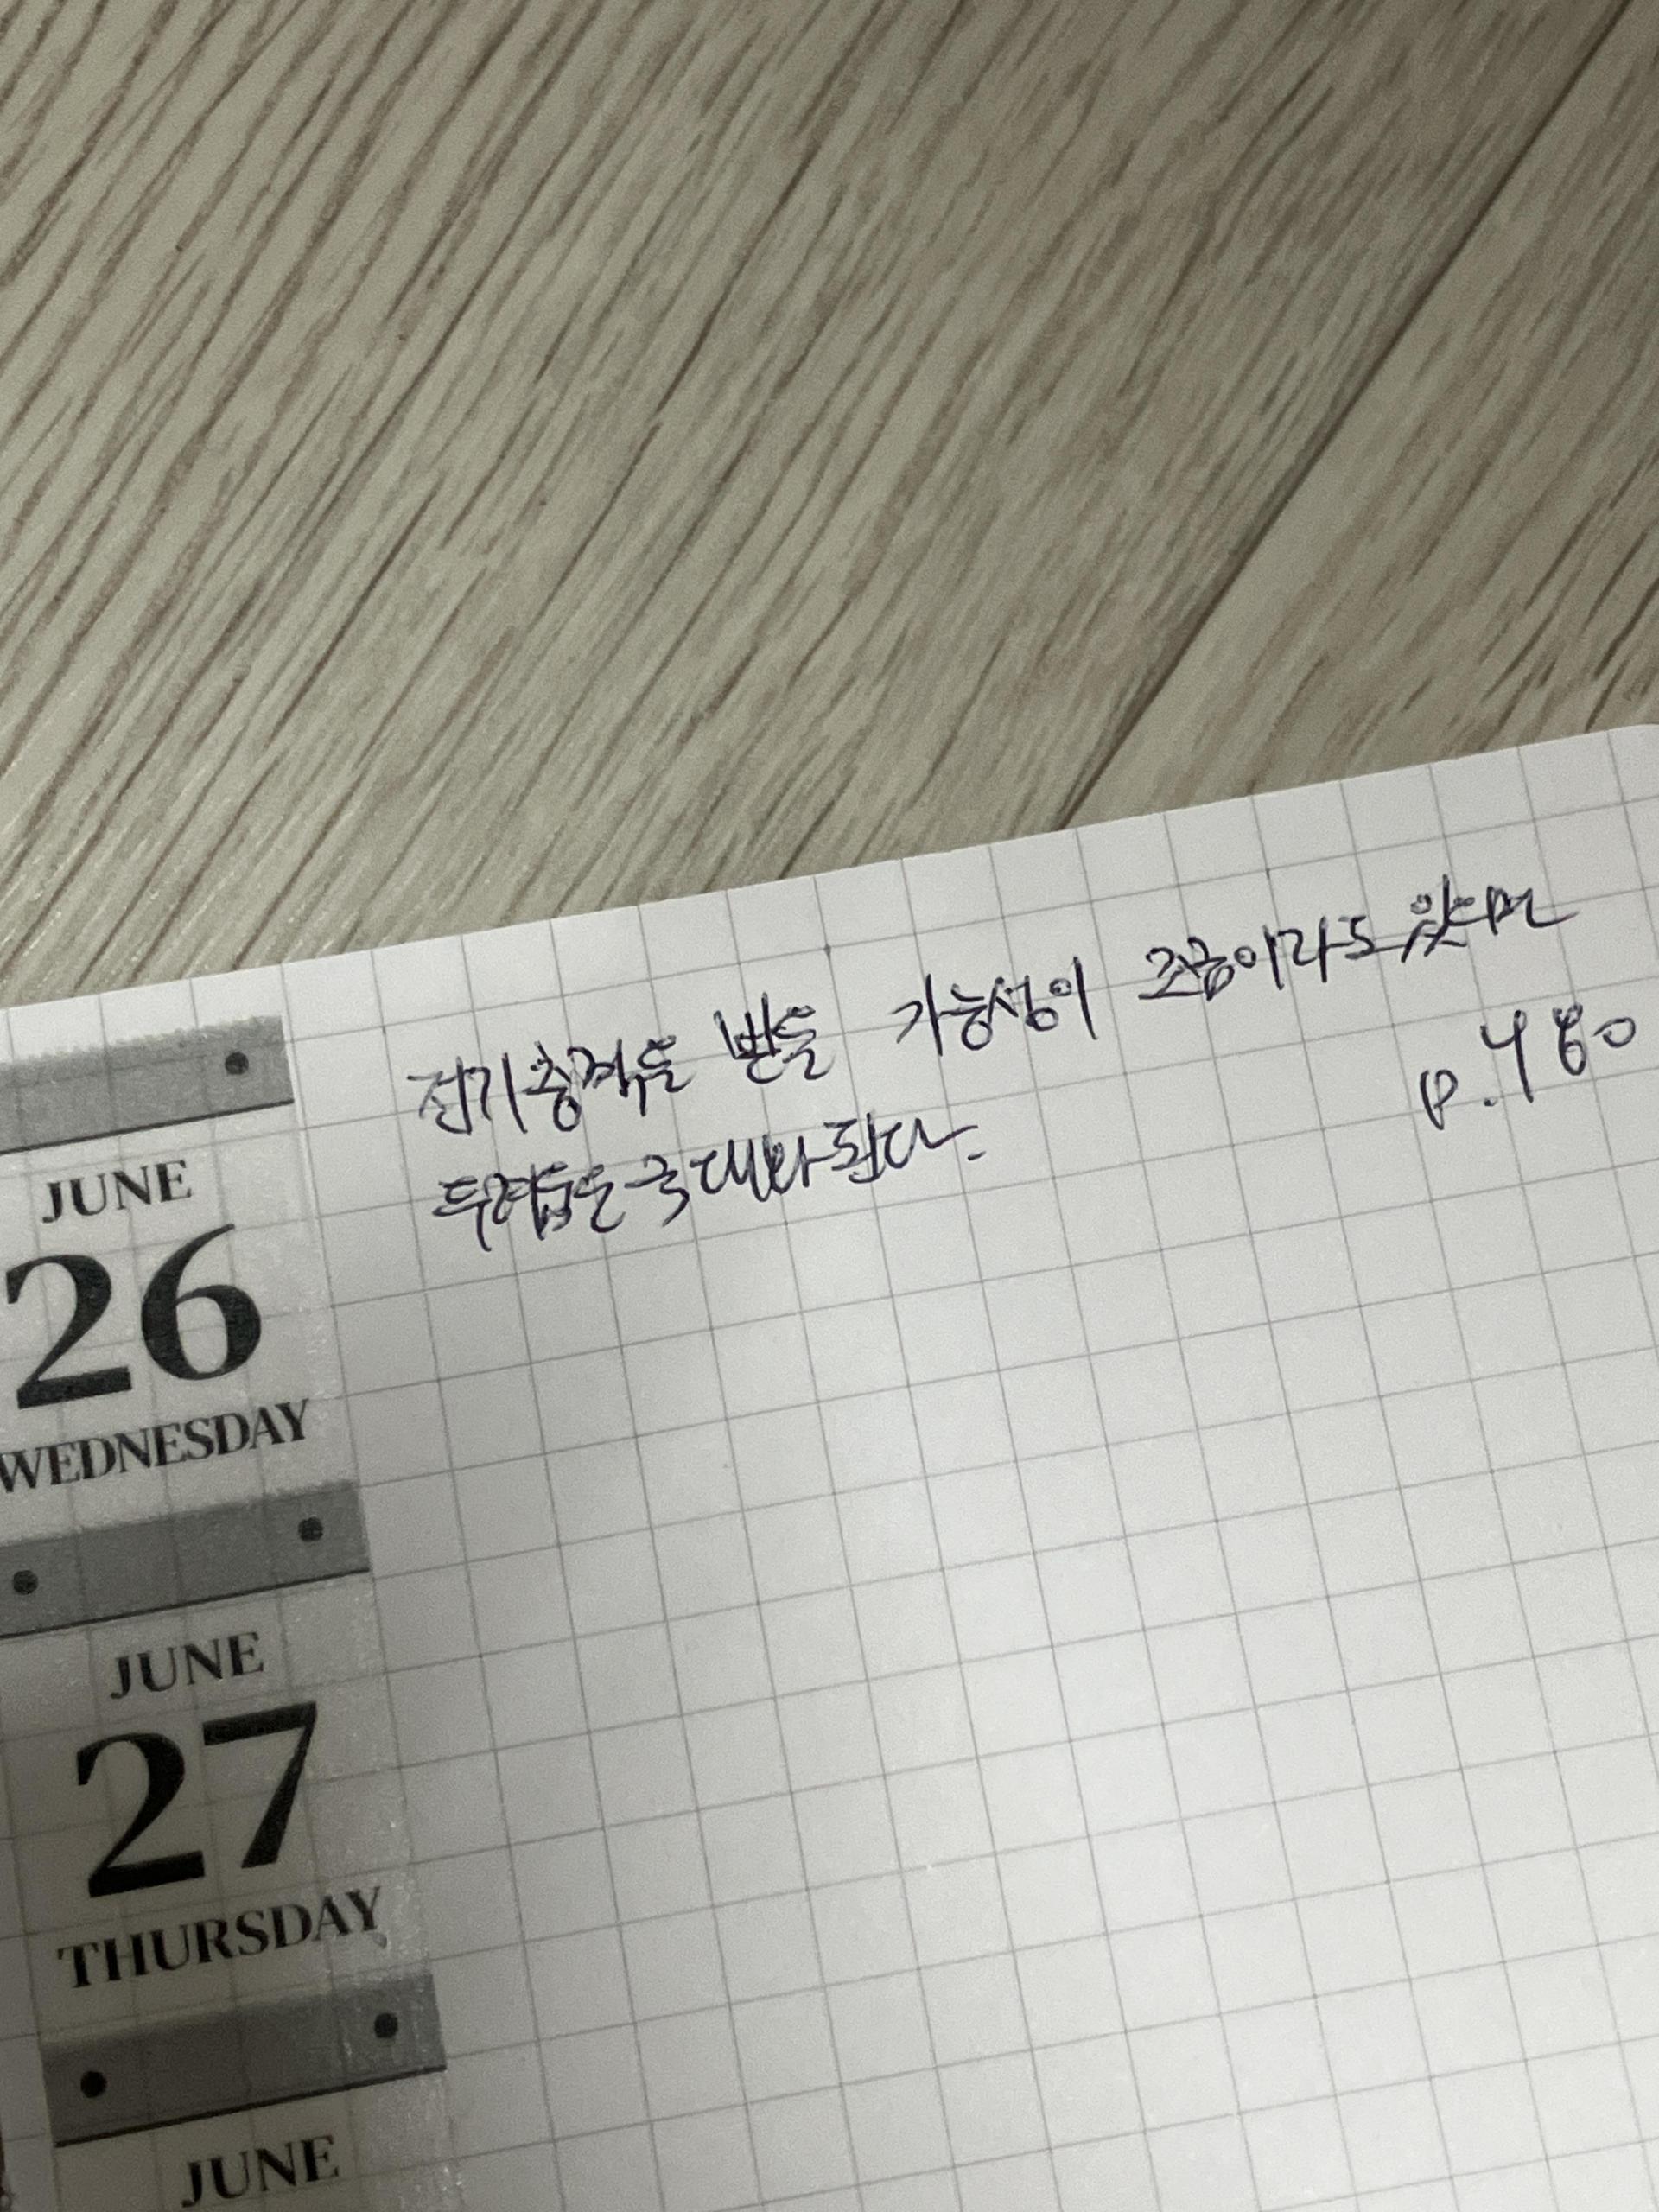 전기충격을 받을 가능성이 조금이라도 있으면
p.480
두려움은 극대화 된다.
JUNE
26
WEDNESDAY
JUNE
27
THURSDAY
JUNE